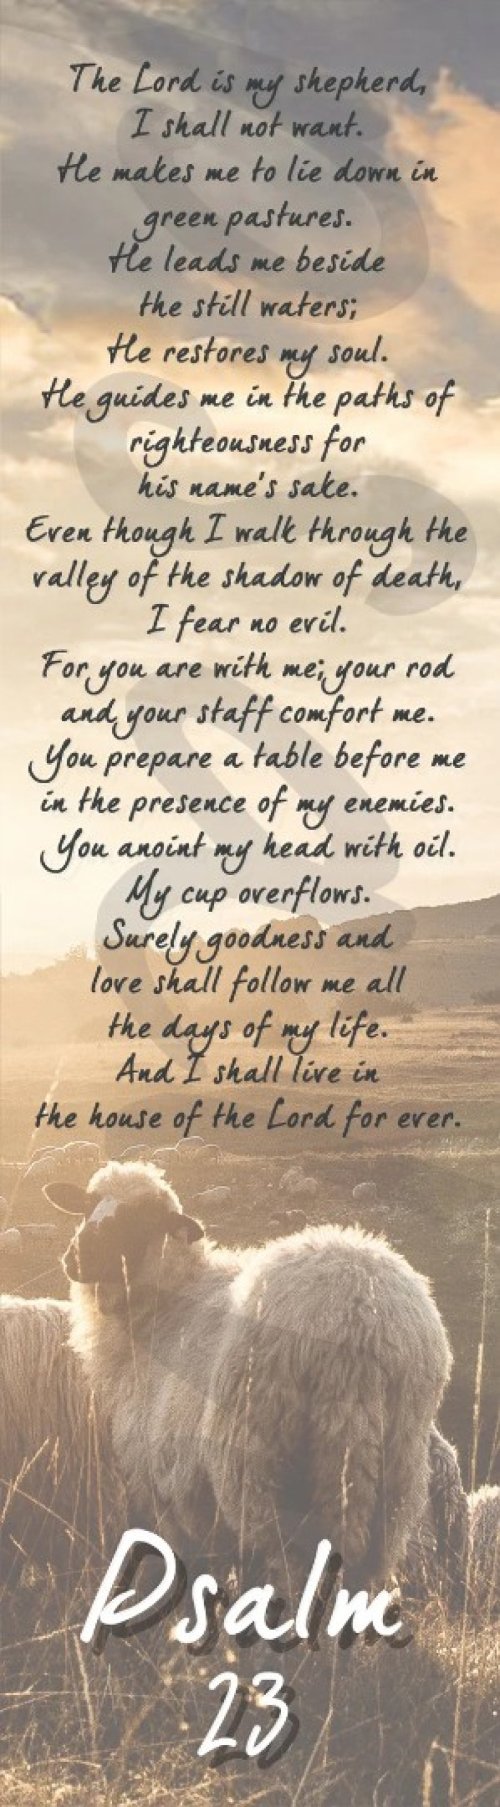 The Lord is my shepherd,
I shall not want.
He makes me to lie down in
green pastures.
He leads me beside
the still waters;
He restores my soul.
He guides me in the paths of
righteousness for
his name's sake.
Even though I walk through the
valley of the shadow of death,
I fear no evil.
For you are with me; your rod
and your staff comfort me.
You prepare a table before me
in the presence of my enemies.
You anoint my head with oil.
My cup overflows.
Surely goodness and
love shall follow me all
the days of my life.
And I shall live in
the house of the Lord for ever.
Psalm
23